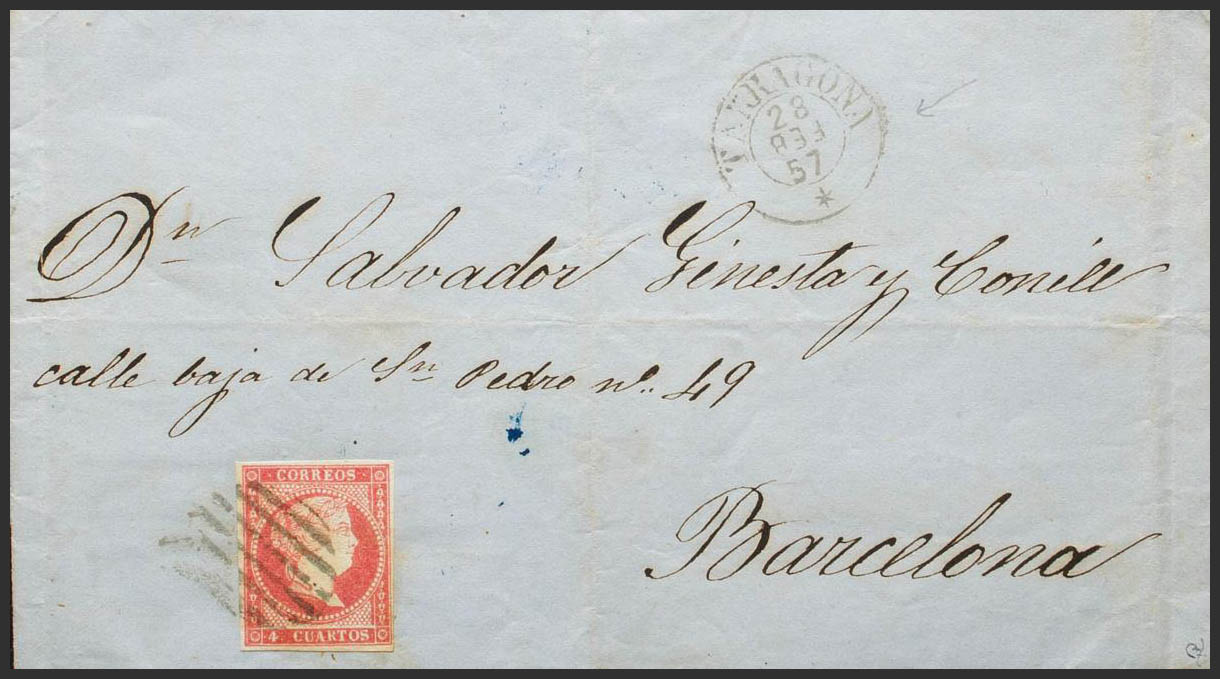 TARRAGONA
28
57
*
Dn Salvador Ginesta y Conill
calle baja de Sn Pedro nº 49
CORREOS
4 CUARTOS
Barcelona